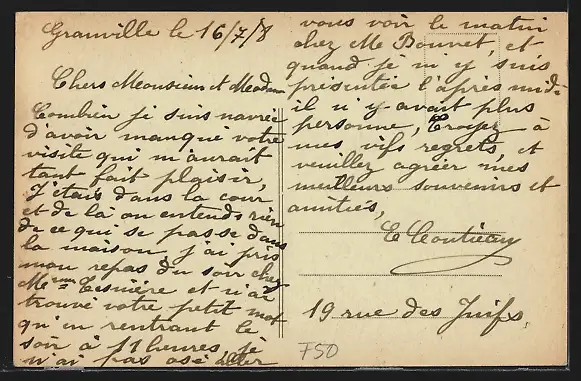 Granville le 16/7/8
Chers Monsieur et Madame
Combien je suis navrée
d'avoir manqué votre
visite qui m'aurait
tant fait plaisir,
J'étais dans la cour
et de là on entends rien
de ce qui se passe dans
la maison, j'ai pris
mon repas du soir chez
Mme et n'ai
trouvé votre petit mot
qu'en rentrant le
soir à 11 heures, je
n'ai pas osé aller
vous voir le matin
chez Me Bouvet, et
quand je m'y suis
présentée l'après midi
il n'y avait plus
personne, Croyez à
mes vifs regrets, et
veuillez agréer mes
meilleurs souvenirs et
amitiés,
E
19 rue des Juifs,
FSO